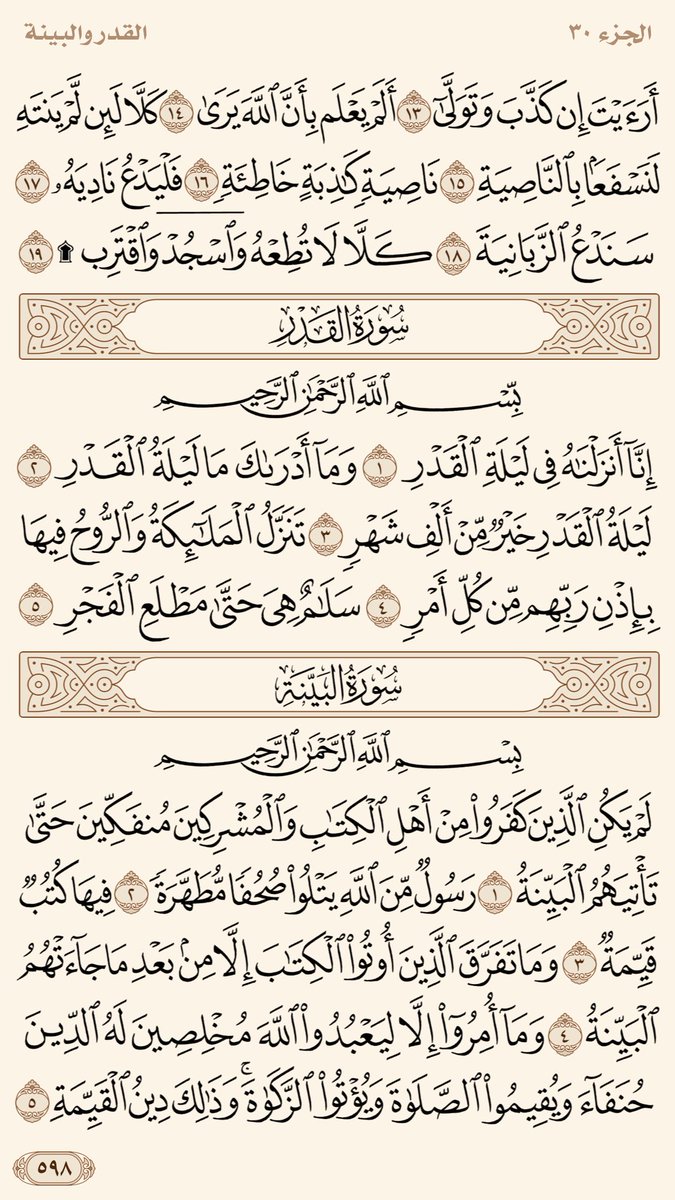 الجزء ٣٠
القدر والبينة
أَرَءَيۡتَ إِن كَذَّبَ وَتَوَلَّىٰٓ ١٣ أَلَمۡ يَعۡلَم بِأَنَّ ٱللَّهَ يَرَىٰ ١٤ كَلَّا لَئِن لَّمۡ يَنتَهِ
لَنَسۡفَعَۢا بِٱلنَّاصِيَةِ ١٥ نَاصِيَةٖ كَٰذِبَةٍ خَاطِئَةٖ ١٦ فَلۡيَدۡعُ نَادِيَهُۥ ١٧
سَنَدۡعُ ٱلزَّبَانِيَةَ ١٨ كَلَّا لَا تُطِعۡهُ وَٱسۡجُدۡۤ وَٱقۡتَرِب ۩ ١٩
سُورَةُ القَدۡرِ
بِّسۡمِ ٱللَّهِ ٱلرَّحۡمَٰنِ ٱلرَّحِيمِ
إِنَّآ أَنزَلۡنَٰهُ فِي لَيۡلَةِ ٱلۡقَدۡرِ ١ وَمَآ أَدۡرَىٰكَ مَا لَيۡلَةُ ٱلۡقَدۡرِ ٢
لَيۡلَةُ ٱلۡقَدۡرِ خَيۡرٞ مِّنۡ أَلۡفِ شَهۡرٖ ٣ تَنَزَّلُ ٱلۡمَلَٰٓئِكَةُ وَٱلرُّوحُ فِيهَا
بِإِذۡنِ رَبِّهِم مِّن كُلِّ أَمۡرٖ ٤ سَلَٰمٌ هِيَ حَتَّىٰ مَطۡلَعِ ٱلۡفَجۡرِ ٥
سُورَةُ البَيِّنَةِ
بِسۡمِ ٱللَّهِ ٱلرَّحۡمَٰنِ ٱلرَّحِيمِ
لَمۡ يَكُنِ ٱلَّذِينَ كَفَرُواْ مِنۡ أَهۡلِ ٱلۡكِتَٰبِ وَٱلۡمُشۡرِكِينَ مُنفَكِّينَ حَتَّىٰ
تَأۡتِيَهُمُ ٱلۡبَيِّنَةُ ١ رَسُولٞ مِّنَ ٱللَّهِ يَتۡلُواْ صُحُفٗا مُّطَهَّرَةٗ ٢ فِيهَا كُتُبٞ
قَيِّمَةٞ ٣ وَمَا تَفَرَّقَ ٱلَّذِينَ أُوتُواْ ٱلۡكِتَٰبَ إِلَّا مِنۢ بَعۡدِ مَا جَآءَتۡهُمُ
ٱلۡبَيِّنَةُ ٤ وَمَآ أُمِرُوٓاْ إِلَّا لِيَعۡبُدُواْ ٱللَّهَ مُخۡلِصِينَ لَهُ ٱلدِّينَ
حُنَفَآءَ وَيُقِيمُواْ ٱلصَّلَوٰةَ وَيُؤۡتُواْ ٱلزَّكَوٰةَۚ وَذَٰلِكَ دِينُ ٱلۡقَيِّمَةِ ٥
٥٩٨